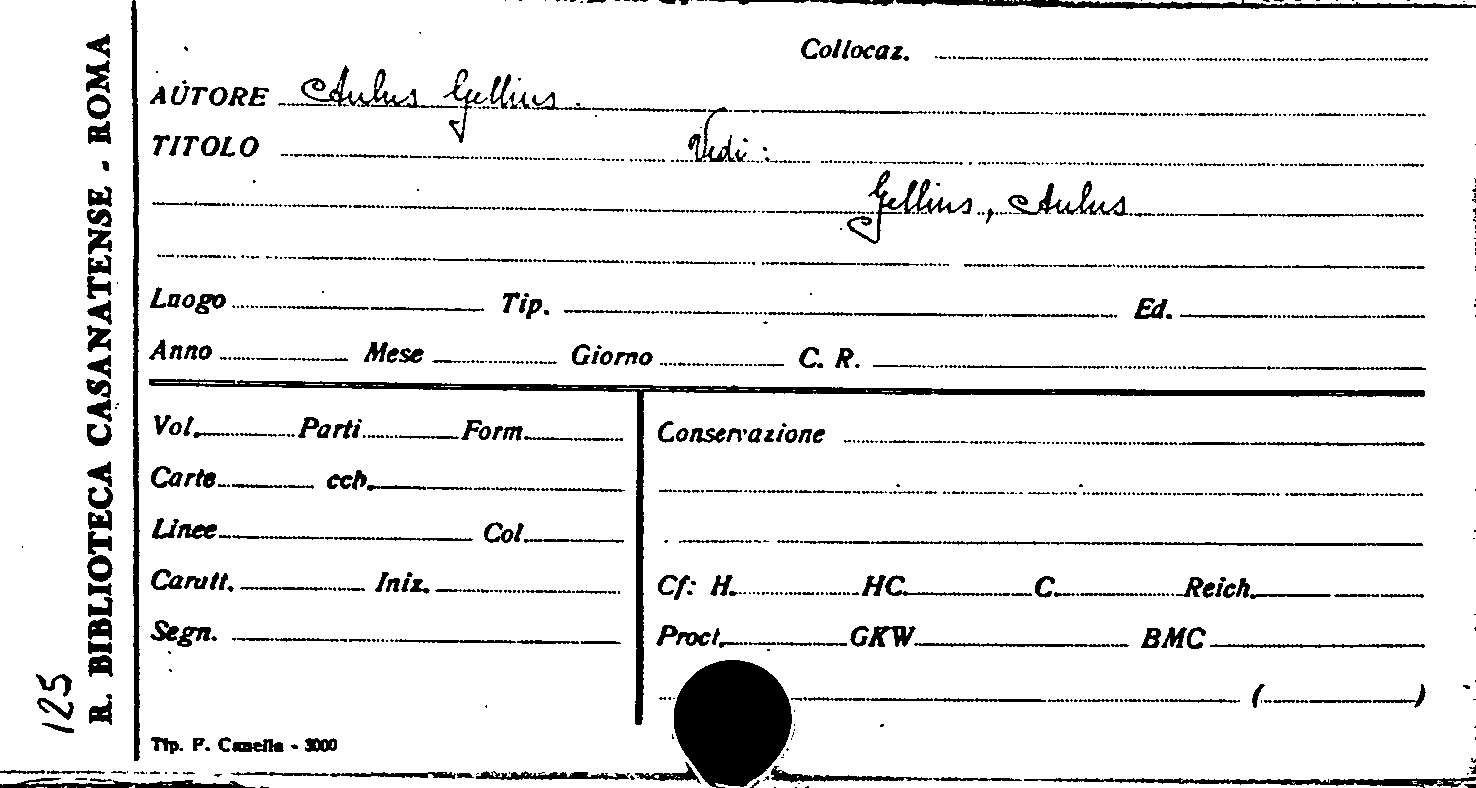 R. BIBLIOTECA CASANATENSE - ROMA
125
Collocaz.
AUTORE Aulus Gellius.
TITOLO Vedi:
Gellius, Aulus
Luogo Tip. Ed.
Anno Mese Giorno C. R.
Vol. Parti Form.
Carte ccb.
Linee Col.
Caratt. Iniz.
Segn.
Conservazione
Cf: H. HC. C. Reich.
Proct. GKW. BMC
( )
Tip. F. Canella - 3000